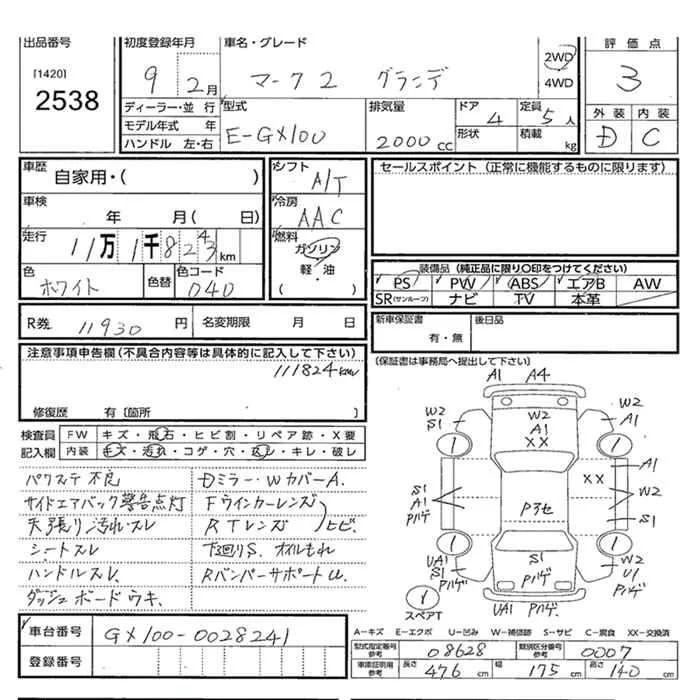 出品番号 [1420] 2538
初度登録年月 9年 2月
車名・グレード マーク2 グランデ 2WD 4WD
評価点 3
外装 D 内装 C
ディーラー・並行
モデル年式 年
ハンドル 左・右
型式 E-GX100
排気量 2000cc
ドア 4 形状
定員 5人 積載 kg
車歴 自家用・( )
車検 年 月( 日)
走行 11万1千824km
色 ホワイト 色替 色コード 040
シフト A/T
冷房 AAC
燃料 ガソリン 軽・油 ( )
セールスポイント (正常に機能するものに限ります)
装備品 (純正品に限り○印をつけてください)
PS PW ABS エアB AW
SR(サンルーフ) ナビ TV 本革
R券 11930円 名変期限 月 日
新車保証書 有・無 後日品
(保証書は事務局へ提出して下さい)
注意事項申告欄(不具合内容等は具体的に記入して下さい)
111824km
修復歴 有〔箇所 〕
検査員記入欄
FW キズ・飛石・ヒビ割・リペア跡・X要
内装 キズ・汚れ・コゲ・穴・スレ・キレ・破レ
パワステ不良 Dミラー・WカバーA.
サイドエアバック警告点灯 Fウインカーレンズ
天張り汚れ・スレ RTレンズ ヒビ.
シートスレ 下回りS. オイルもれ
ハンドルスレ. RバンパーサポートU.
ダッシュボードウキ.
A1 A4
W2 S1 W2 A1 XX W2 A1
1 1
S1 A1 Pハゲ P3セ XX A1 W2 S1
1 1
UA1 S1 Pハゲ S1 Pハゲ W2 U1 Pハゲ
スペアT UA1 Pハゲ.
車台番号 GX100-0028241
登録番号
A-キズ E-エクボ U-凹み W-補修跡 S-サビ C-腐食 XX-交換済
型式指定番号 参考 08628 類別区分番号 参考 0007
車庫証明用 参考 長さ 476cm 幅 175cm 高さ 140cm